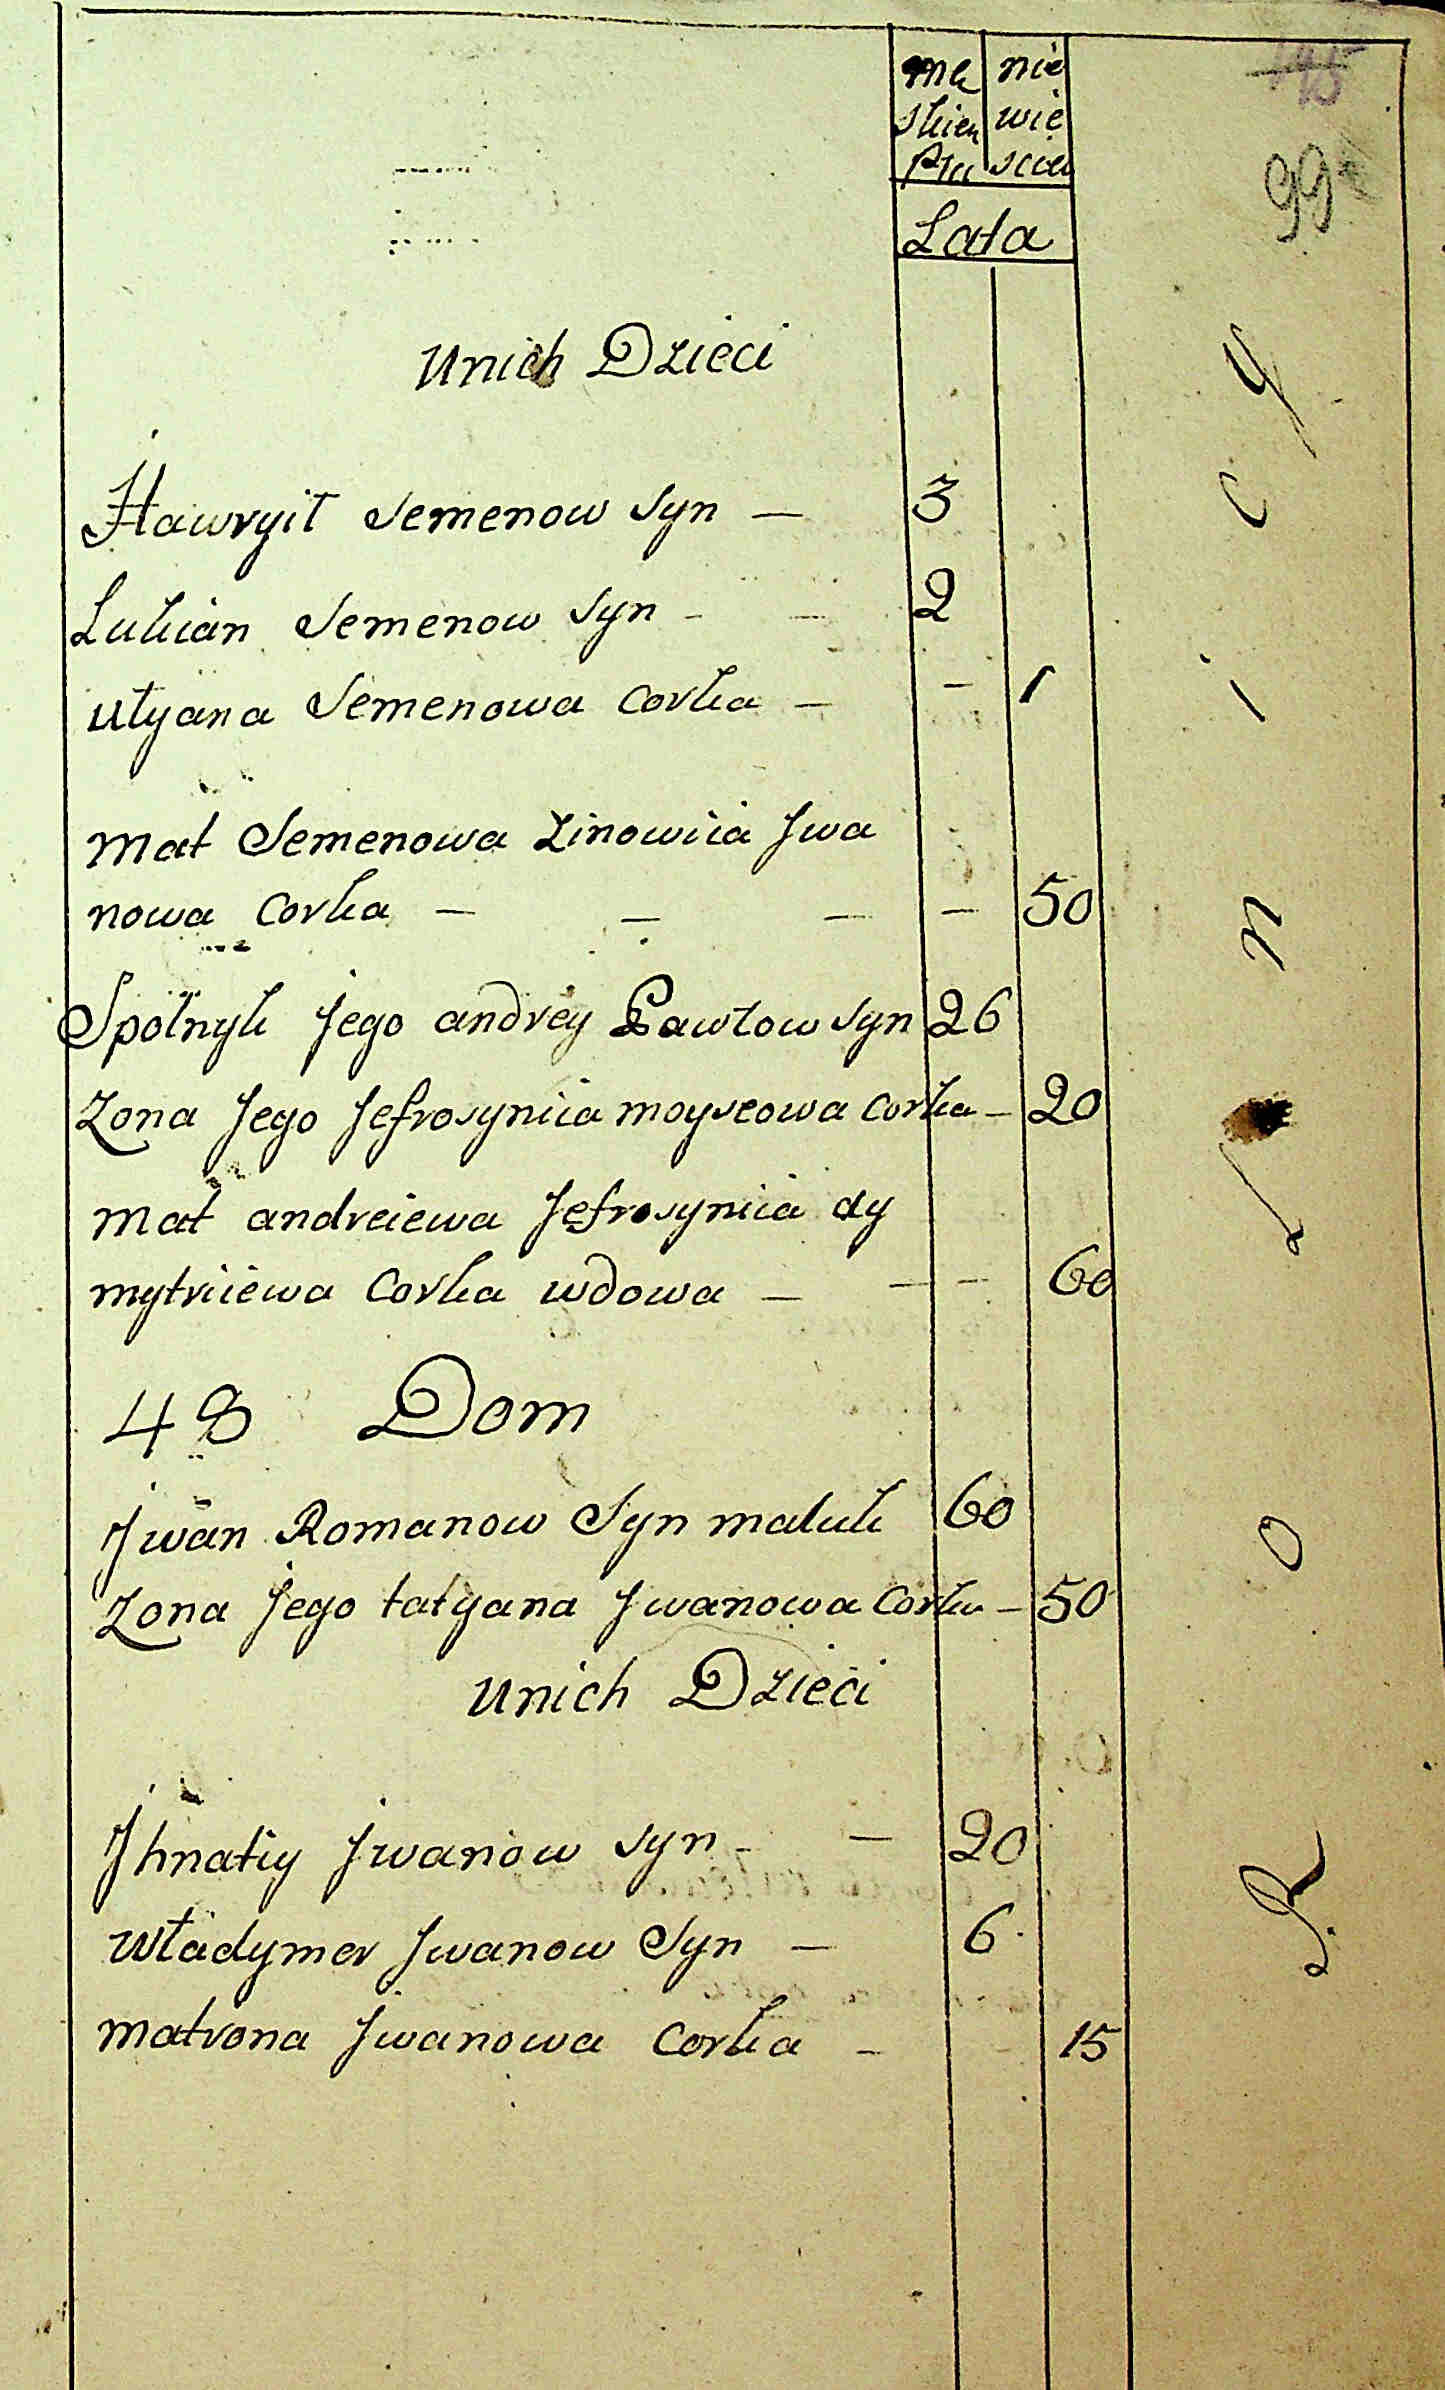 mę nie
skieij wie
Płci sciei
Lata
195
99
Unich Dzieci
Hawryił Semenow Syn — 3
Lukian Semenow Syn - — 2
Ułyana Semenowa Corka — — 1
Mat Semenowa Zinowiia Jwa
nowa Corka — — — — 50
Spolnyk Jego andrey Pawłow Syn 26
Zona Jego Jefrosyniia moyseowa Corka — 20
Mat andreiewa Jefrosyniia dy
mytriiewa Corka wdowa — — — 60
48 Dom
Jwan Romanow Syn maluk 60
Zona Jego tatyana Jwanowa Corka — 50
Unich Dzieci
Jhnatiy Jwanow Syn - — 20
Władymer Jwanow Syn — 6
Matrona Jwanowa Corka - 15
Rolnicy